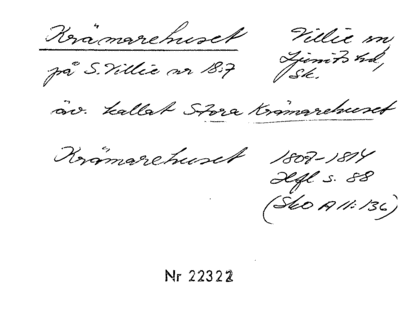 Krämarehuset Villie sn,
på S. Villie nr 18:7 Ljunits hd,
Sk.
äv. kallat Stora Krämarehuset
Krämarehuset 1807-1814
Hfl s. 88
(SkO A II:136)
Nr 22322